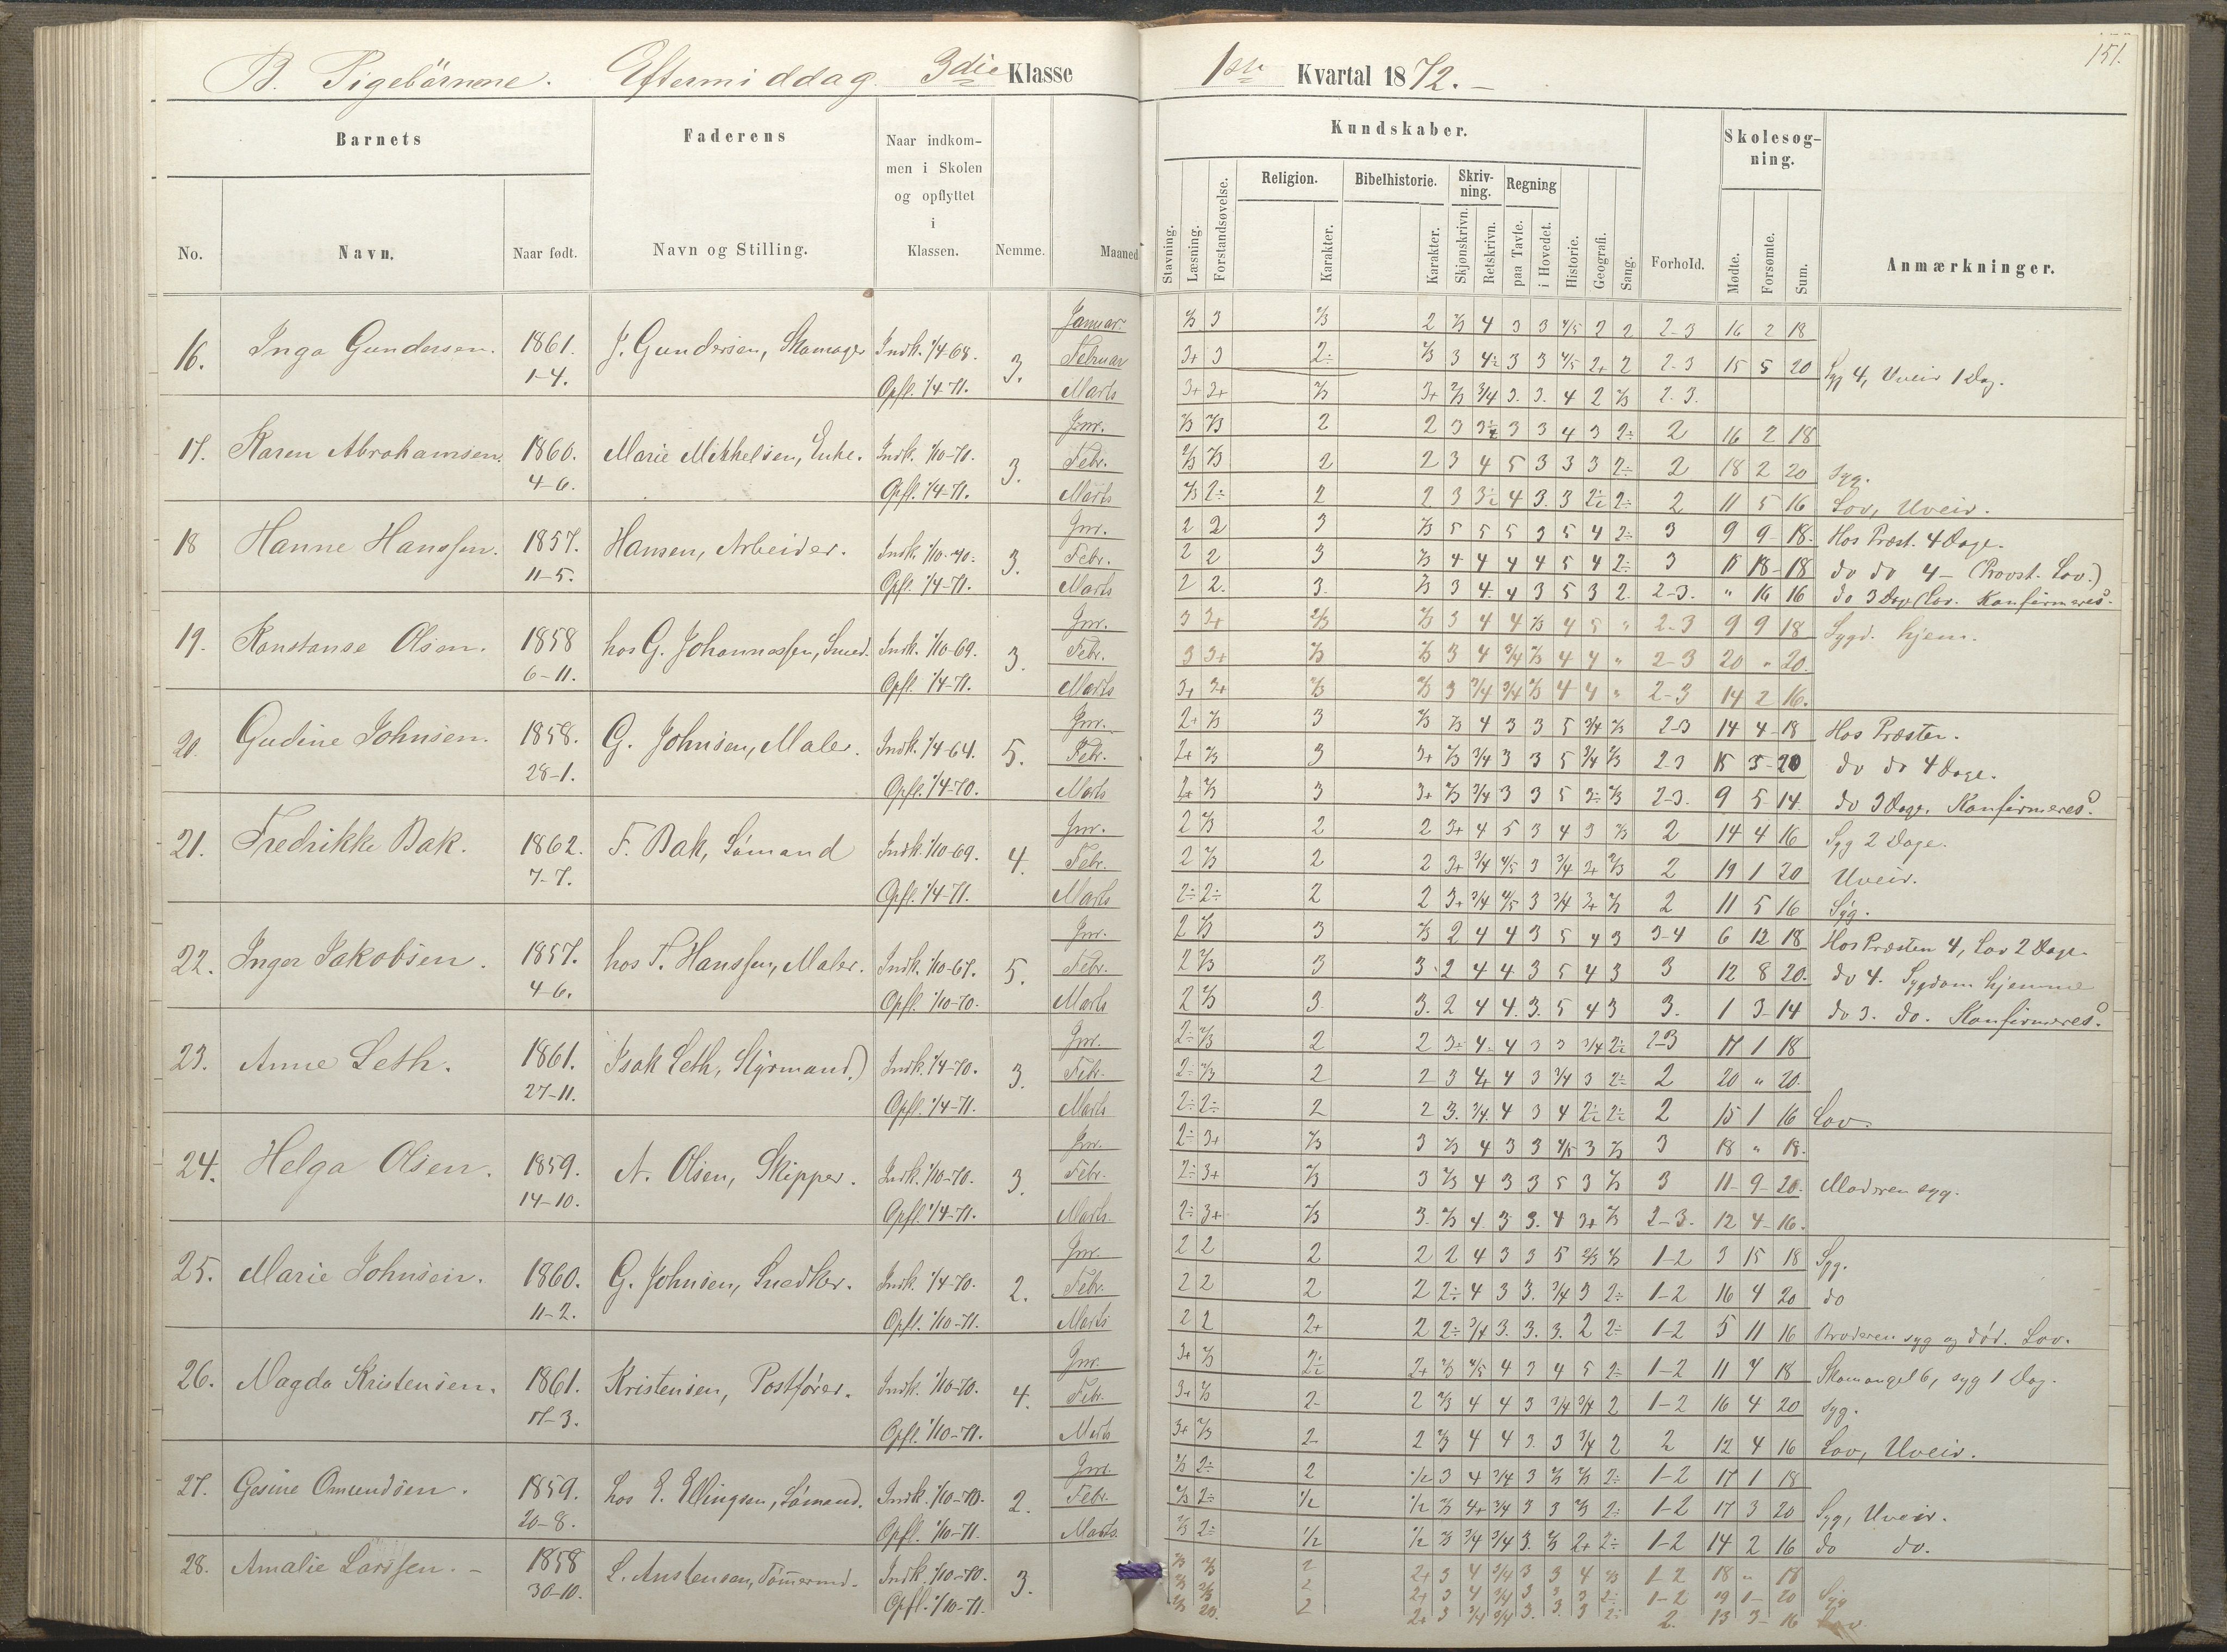 B. Pigebörnene. Eftermiddag 3die Klasse
1ste Kvartal 1872.
151.
Barnets
Faderens
Naar indkom-
men i Skolen
og opflyttet
i
Klassen.
No.
Navn.
Naar født.
Navn og Stilling.
Nemme.
Maaned
Kundskaber.
Stavning.
Læsning.
Forstandsøvelse.
Religion.
Karakter.
Bibelhistorie.
Karakter.
Skriv-
ning.
Skjønskrivn.
Retskrivn.
Regning
paa Tavle.
i Hovedet.
Historie.
Geografi.
Sang.
Forhold.
Skolesøg-
ning.
Mødte.
Forsømte.
Sum.
Anmærkninger.
16. Inga Gundersen. 1861. J. Gundersen, Skomager Indk. 1/4-68. 3. Januar 2/3 3 2/3 2 2/3 4 3 3 4/5 2 2 2-3 16 2 18
1-4. Februar 3+ 3 2÷ 2/3 3 4÷ 3 3 4/5 2+ 2 2-3 15 5 20 Syg 4, Uveir 1 Dag.
Opfl. 1/4-71. Marts 3+ 2+ 2/3 3+ 2/3 3/4 3. 3. 4 2 2/3 2-3.
17. Karen Abrahamsen. 1860. Marie Mikkelsen, Enke. Indk. 1/10-70. 3. Jnr. 2/3 2/3 2 2 3 3÷ 3 3 4 3 2÷ 2 16 2 18
4-6. Febr. 2/3 2/3 2 2 3 4 5 3 3 3 2÷ 2 18 2 20 Syg.
Opfl. 1/4-71. Marts 2/3 2÷ 2 2 3 3÷ 4 3. 3 2÷ 2÷ 2 11 5 16 Lov, Uveir.
18 Hanne Hanssen. 1857. Hansen, Arbeider. Indk. 1/10-70. 3. Jnr. 2 2 3 2/3 5 5 5 3 5 4 2÷ 3 9 9 18. Hos Præst. 4 Dage.
11-5. Febr. 2 2 3 2/3 4 4 4 4 5 4 2÷ 3 18 18 do do 4- (Provst. Lov.)
Opfl. 1/4-71. Marts 2 2. 3. 2/3 3 4. 4 3 5 3 2. 2-3. " 16 16 do 3 Dage (Lov. Konfirmeres.
19. Konstanse Olsen. 1858 hos G. Johannessen, Smed. Indk. 1/10-69. 3. Jnr. 3 3+ 2/3 2/3 3 4 4 2/3 4 5 " 2-3 9 9 18 Sygd. hjem.
6-11. Febr. 3 3+ 2/3 2/3 3 4 3/4 2/3 4 4 " 2-3 20 " 20.
Opfl. 1/4-71. Marts 3+ 3+ 2/3 2/3 3 3/4 3/4 2/3 4 4 " 2-3 14 2 16.
20. Gudine Johnsen. 1858. G. Johnsen, Maler. Indk. 1/4-64. 5. Jnr. 2+ 2/3 3 2/3 2/3 4 3 3 5 3/4 2/3 2-3 14 4 18 Hos Præsten.
28-1. Febr. 2+ 2/3 3 3+ 2/3 3/4 3 3 5 3/4 2/3 2-3 15 5 20 do do 4 Dage.
Opfl. 1/4-70. Marts 2+ 2/3 3 3+ 2/3 3/4 3 3 5 3÷ 2/3 2-3. 9 5 14 do 3 Dage. Konfirmeres.
21. Fredrikke Bak. 1862. F. Bak, Sömand Indk. 1/10-69. 4. Jnr. 2 2/3 2 2 3+ 4 5 3 4 3 2/3 2 14 4 16 Syg 2 Dage.
7-7. Febr. 2 2/3 2 2 3+ 3/4 4/5 3 3/4 3+ 2/3 2 19 1 20 Uveir.
Opfl. 1/4-71. Marts 2÷ 2÷ 2 2 3+ 3/4 4/5 3 3/4 3+ 2/3 2 11 5 16 Syg.
22. Inger Jakobsen. 1857. hos F. Hanssen, Maler. Indk. 1/10-67. 5. Jnr. 2 2/3 3 2/3 2 4 4 3 5 4 3 3-4 6 12 18 Hos Præsten 4, Lov 2 Dage.
4-6. Febr. 2 2/3 3 3 2 4 4 3 5 4 3 3 12 8 20. do 4. Sygdom hjemme
Opfl. 1/10-70. Marts 2 2/3 3. 3. 2 4 4. 3. 5 4 3 3. 1 3 14 do 3. do. Konfirmeres.
23. Anne Leth. 1861. Isak Leth, Styrmand.) Indk. 1/4-70. 3. Jnr. 2÷ 2/3 2 2 3÷ 4÷ 4 3 3 3/4 2÷ 2-3 17 1 18
27-11. Febr. 2÷ 2/3 2 2 3 4+ 4 3 3/4 3 2÷ 2 20 " 20.
Opfl. 1/4-71. Marts 2÷ 2÷ 2 2 3. 3/4. 4 3 4 2÷ 2÷ 2 15 1 16 Lov.
24. Helga Olsen. 1859. A. Olsen, Skipper. Indk. 1/10-70. 3. Jnr. 2÷ 3+ 2/3 3 2/3 4 3 3 4/5 3 2/3 3 18 " 18.
14-10. Febr. 2÷ 3+ 2/3 3 2/3 4 3 3 5 3 2/3 3 11 9 20. Moderen syg.
Opfl. 1/4-71. Marts. 2÷ 3+ 2/3 3. 2/3 4. 3 3. 4 3+ 2/3 2-3. 12 4 16.
25. Marie Johnsen. 1860. G. Johnsen, Snedker. Indk. 1/4-70. 2. Jnr. 2 2 2 2 2 4 3 3 5 2/3 2/3 1-2 3 15 18 Syg.
11-2. Febr. 2 2 2 2 2÷ 4 3 3. 3/4 3 2÷ 1-2 16 4 20 do
Opfl. 1/10-71. Marts 2 2 2+ 2 2÷ 3/4 3. 3. 3. 2 2÷ 1-2 5 11 16 Broderen syg og död. Lov.
26. Magda Kristensen. 1861. Kristensen, Postförer. Indk. 1/10-70. 4. Jnr. 3+ 2/3 2÷ 2+ 2/3 4/5 4 3 4 5 2÷ 1-2 11 7 18 Skomangel 6, syg 1 Dag.
17-3. Febr. 3+ 2/3 2 2 2/3 4 4 3 3/4 3/4 2 1-2 16 4 20 syg.
Opfl. 1/10-71. Marts 3+ 2/3 2 2 2/3 4 4 3. 3 3/4 2 2 12 4 16 Lov, Uveir.
27. Gesine Omundsen. 1859. hos E. Ellingsen, Sömand. Indk. 1/10-70. 2. Jnr. 2/3 2÷ 2 1/2 3 4 3/4 3 2/3 2/3 2÷ 1-2 17 1 18
20-8. Febr. 2/3 2÷ 1/2 1/2 2/3 4+ 3/4 3 3 2/3 2÷ 1-2 17 3 20 Syg, Uveir.
Opfl. 1/10-71. Marts. 2/3 2÷ 1/2 1/2 2/3 3/4 3/4 3. 2/3 2+ 2÷ 1-2 14 2 16 do do.
28. Amalie Larssen. 1858 L. Austensen, Tömermd. Indk. 1/10-70. 3. 2/3 2/3 2 2+ 3 4 3/4 3 3 4 2/3 1-2 18 " 18
30-10. 2/3 2/3 2 2+ 3 4 3/4 3 3 3 2÷ 1-2 19 1 20 Syg
Opfl. 1/10-71. 2/3 2 2+ 3 3/4 3/4 3. 3. 3 2÷ 2. 13 3 16 Lov.